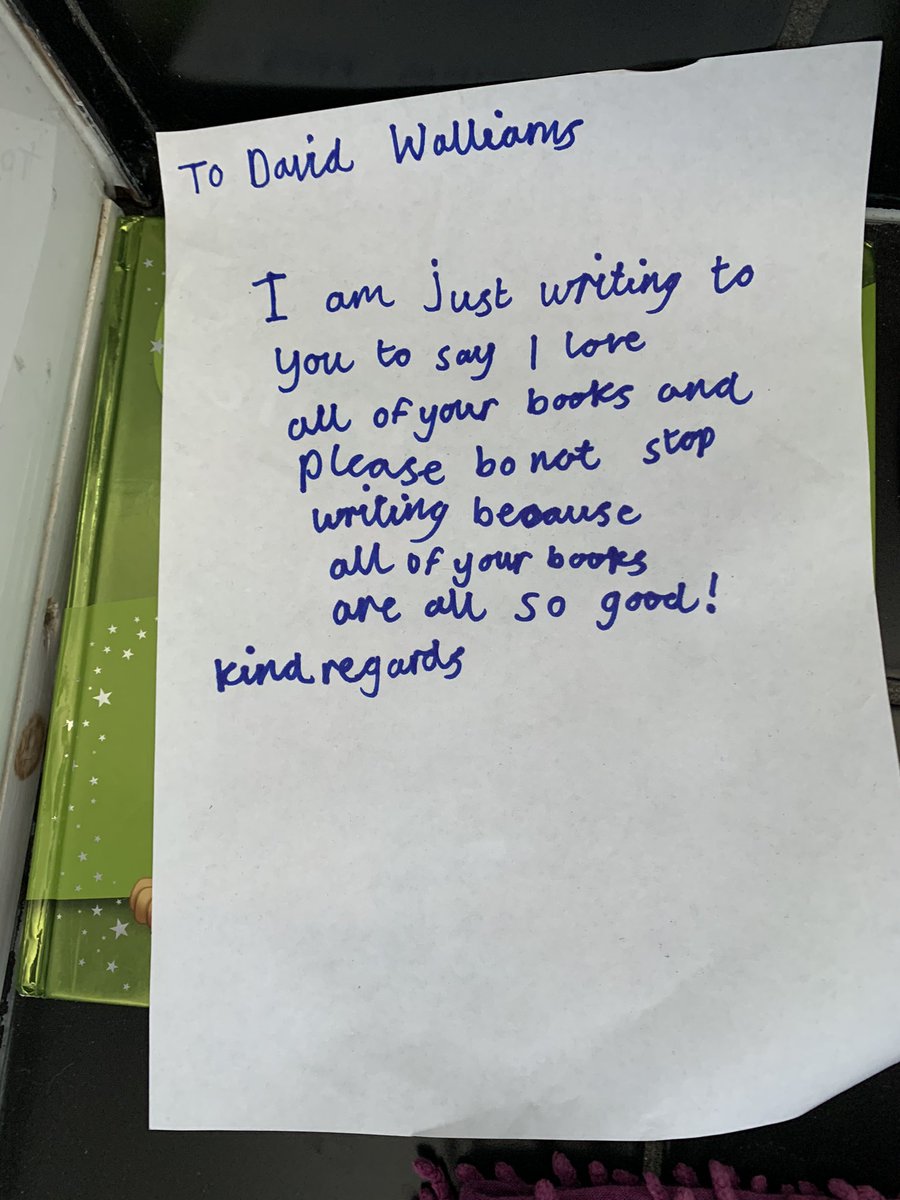 To David Walliams
I am just writing to
you to say I love
all of your books and
please bo not stop
writing because
all of your books
are all so good!
kind regards